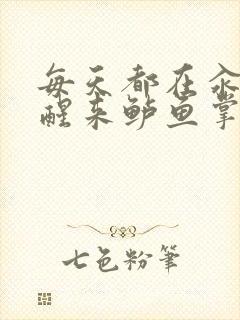 每天都在汆
醒来鲈鱼掌
七色粉筆